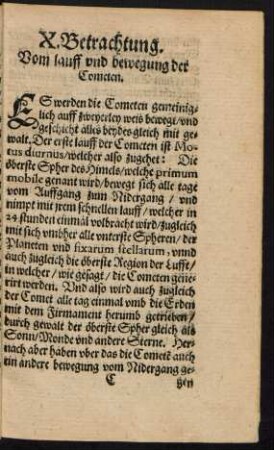 X. Betrachtung.
Vom lauff vnd bewegung der
Cometen.
ES werden die Cometen gemeinig-
lich auff zweyerley weis bewegt/ vnd
geschicht alles beydes gleich mit ge-
walt. Der erste lauff der Cometen ist Mo-
tus diurnus/ welcher also zugehet: Die
öberste Spher des Himels/ welche primum
mobile genant wird/ bewegt sich alle tage
vom Auffgang zum Nidergang / vnd
nimpt mit jrem schnellen lauff / welcher in
24 stunden einmal volbracht wird/ zugleich
mit sich vmbher alle vnterste Spheren/ der
Planeten vnd fixarum stellarum, vnnd
auch zugleich die öberste Region der Lufft/
in welcher / wie gesagt / die Cometen gene-
rirt werden. Vnd also wird auch zugleich
der Comet alle tag einmal vmb die Erden
mit dem Firmament herumb getrieben/
durch gewalt der öberste Spher gleich als
Sonn/ Monde vnd andere Sterne. Her-
nach aber haben vber das die Cometē auch
ein andere bewegung vom Nidergang ge-
C gen